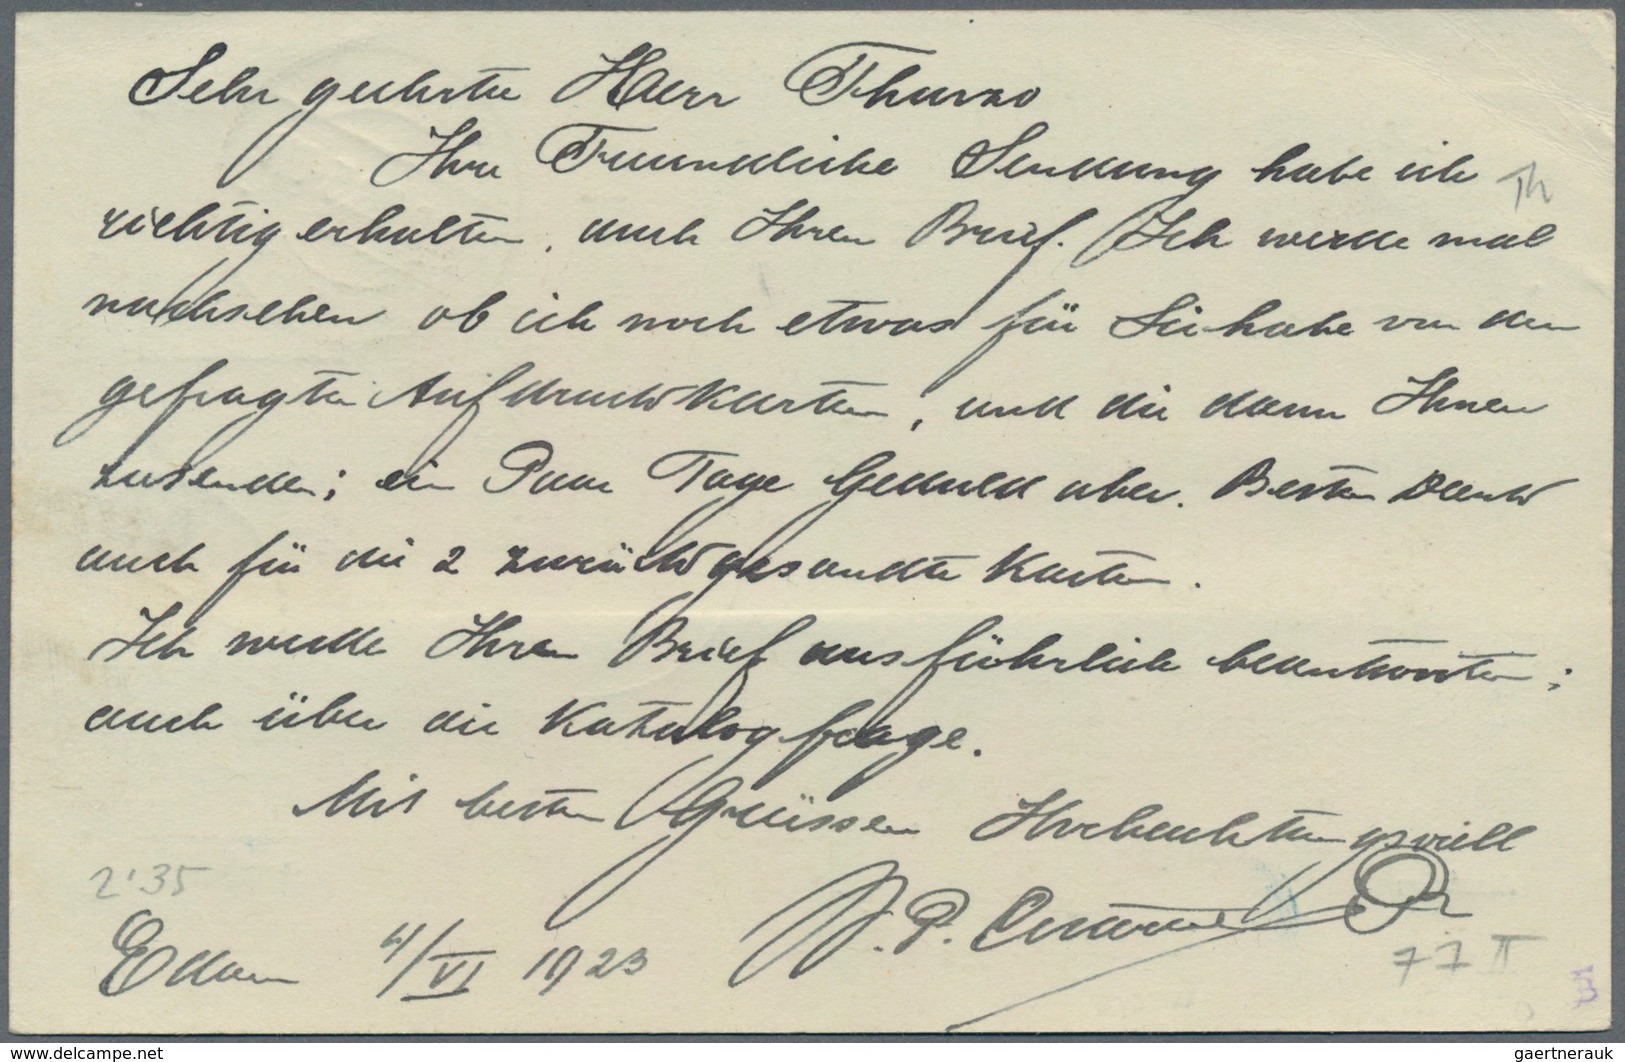 Sehr geehrter Herr Thurzo
Ihre Freundliche Sendung habe ich
richtig erhalten, auch Ihren Brief. Ich werde mal
nachsehen ob ich noch etwas für Sie habe von den
gefragten Aufdruckkarten, und die dann Ihnen
zusenden; ein Paar Tage Geduld aber. Besten Dank
auch für die 2 zurückgesandte Karten.
Ich werde Ihren Brief ausführlich beantworten;
auch über die Katalogfrage.
Mit besten Grüssen Hochachtungsvoll
2'35
P.
Edam 4/VI 1923
77 II
Th
www.delcampe.net
gaertnerauk